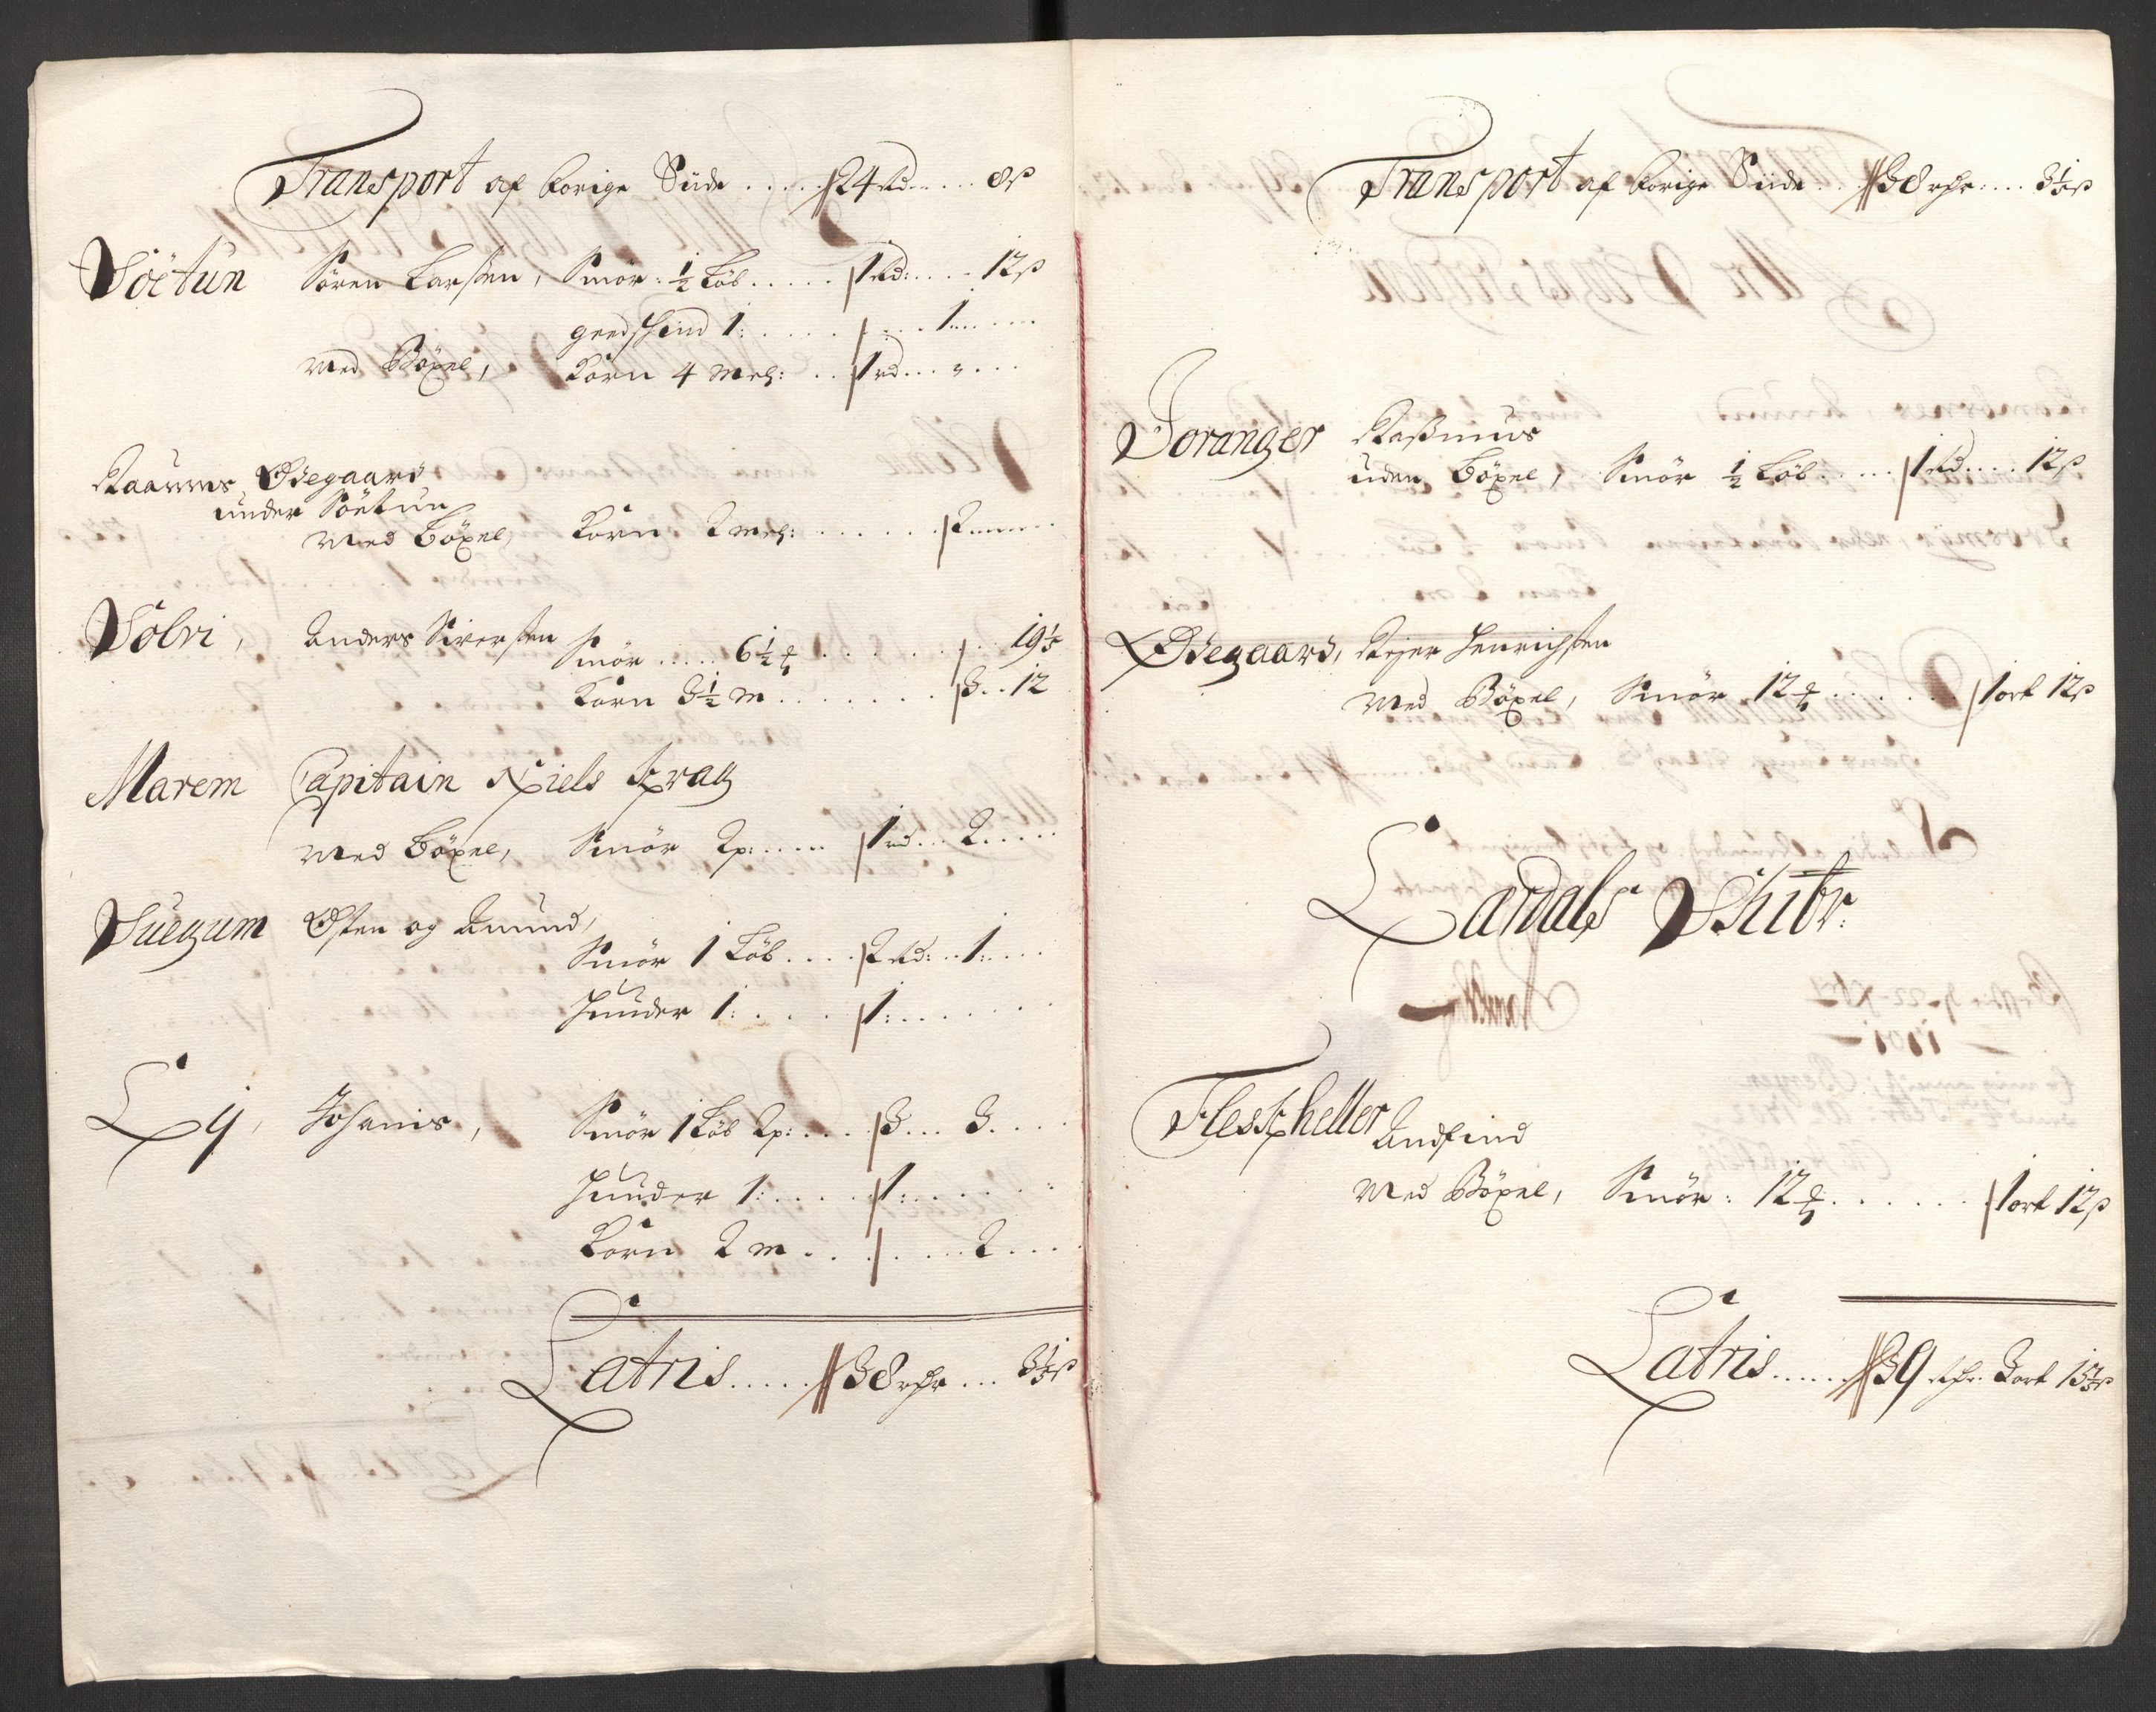 Transport af forige Siide ..... 24 Rd .... 8 s
Söetun Sören Larssen, Smör: ½ Löb ..... 1 Rd: .... 12 s
giedskind 1: ..... 1 ....
med Böxel, Korn 4 mel: .. 1 rd ... „ ...
Raaums Ødegaard
under Söetun
med böxel, Korn 2 mel: ..... 2 ....
Solvi, Anders Siverssen Smör .... 6½ ..... 19⅕
Korn 3½ m ...... 3 .. 12
Marem Capitain Niels Krag
med böxel, Smör 2 p: ..... 1 rd ... 2 ...
Suegum Østen og Amund,
Smör 1 Löb .... 2 Rd: .. 1: ...
Huuder 1: .... 1: .....
Ly, Johanis, Smör 1 Löb 2 p: .... 3 ... 3 ....
Huuder 1: .... 1: .....
Korn 2 m ...... 2 ....
Latris ..... 38 rdr ... 3⅕ s
Transport af forige Siide ... 38 rdr: .... 3⅕ s
Joranger Rasmus
uden böxel, Smör ½ Löb ..... 1 Rd .... 12 s
Ødegaard, Rejer Henrichssen
med Böxel, Smör 12 ..... 1 ort 12 s
Lardals Schibr:
Flesche​ller Andfind
med Böxel, Smör: 12 ...... 1 ort 12 s
Latris ...... 39 rdr. 3 ort 15⅕ s